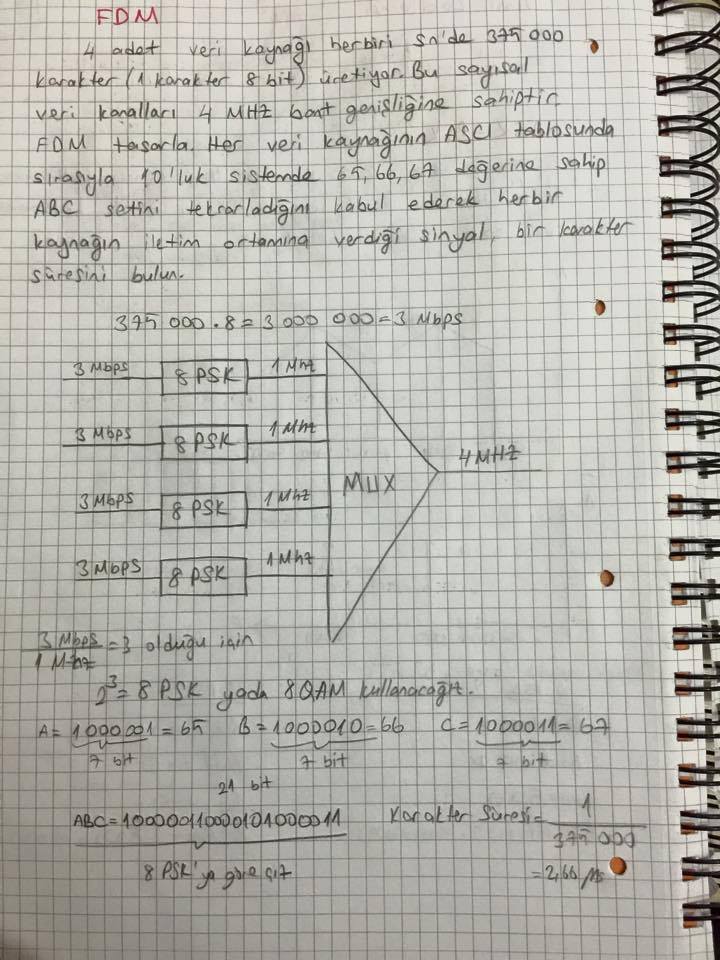 FDM
4 adet veri kaynağı herbiri sn'de 375 000
karakter (1 karakter 8 bit) üretiyor. Bu sayısal
veri kanalları 4 MHZ bant genişliğine sahiptir.
FDM tasarla. Her veri kaynağının ASCI tablosunda
sırasıyla 10'luk sistemde 65, 66, 67 değerine sahip
ABC setini tekrarladığını kabul ederek herbir
kaynağın iletim ortamına verdiği sinyal, bir karakter
süresini bulun.
375 000 . 8 = 3 000 000 = 3 Mbps
3 Mbps 8 PSK 1 Mhz
3 Mbps 8 PSK 1 Mhz
MUX 4 MHZ
3 Mbps 8 PSK 1 Mhz
3 Mbps 8 PSK 1 Mhz
3 Mbps / 1 Mhz = 3 olduğu için
2³ = 8 PSK yada 8 QAM kullanacağız.
A = 1000001 = 65 B = 1000010 = 66 C = 1000011 = 67
7 bit 7 bit 7 bit
21 bit
ABC = 100000110000101000011 Karakter Süresi = 1 / 375 000
8 PSK'ya göre çiz = 2,66 µs